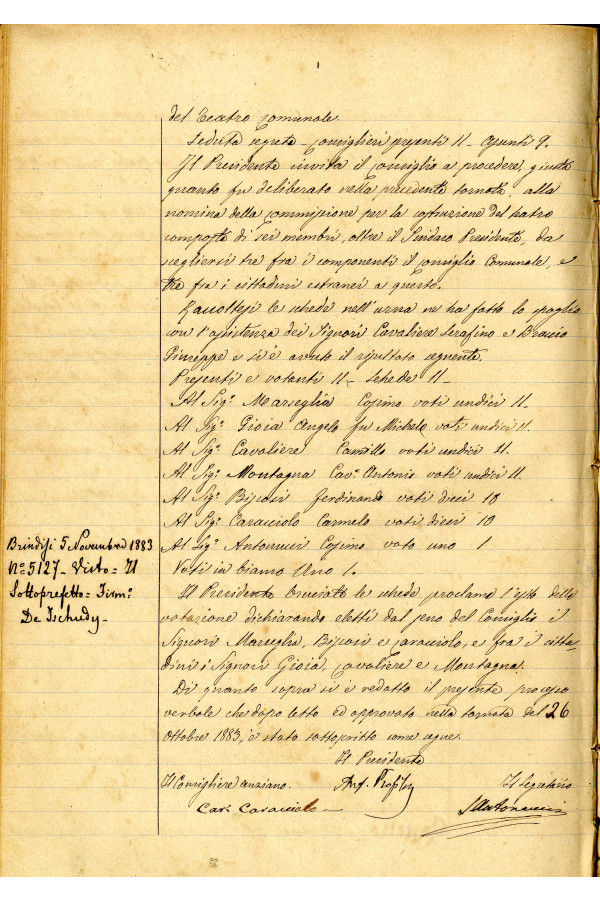 del Teatro comunale.
Seduta segreta – Consiglieri presenti 11 – Assenti 9.
Il Presidente invita il Consiglio a procedere, giusta
quanto fu deliberato nella precedente tornata, alla
nomina della commissione per la costruzione del teatro
composta di sei membri, oltre il Sindaco Presidente, da
scegliersi tre fra i componenti il Consiglio Comunale, e
tre fra i cittadini estranei a questo.
Raccoltesi le schede nell'urna ne ha fatto lo spoglio
con l'assistenza dei Signori Cavaliere Serafino e Braccio
Giuseppe e si è avuto il risultato seguente.
Presenti e votanti 11 – Schede 11 –
Al Sig.r Marseglia Cosimo voti undici 11.
Al Sig.r Gioia Angelo fu Michele voti undici 11.
Al Sig.r Cavaliere Camillo voti undici 11.
Al Sig.r Montagna Cav.r Antonio voti undici 11.
Al Sig.r Bisconi Ferdinando voti dieci 10
Al Sig.r Caracciolo Carmelo voti dieci 10
Al Sig.r Antonucci Cosimo voto uno 1
Voti in bianco Uno 1.
Il Presidente bruciate le schede proclama l'esito della
votazione dichiarando eletti dal seno del Consiglio i
Signori Marseglia, Bisconi e Caracciolo, e fra i citta-
dini i Signori Gioia, Cavaliere e Montagna.
Di quanto sopra si è redatto il presente processo
verbale che dopo letto ed approvato nella tornata del 26
Ottobre 1883, è stato sottoscritto come segue.
Il Presidente
Il Consigliere anziano.
Il Segretario
Car. Caracciolo –
SAntonucci
Brindisi 5 Novembre 1883
N.o 5127 – Visto = Il
Sottoprefetto = Firm.o
De Tschudy –